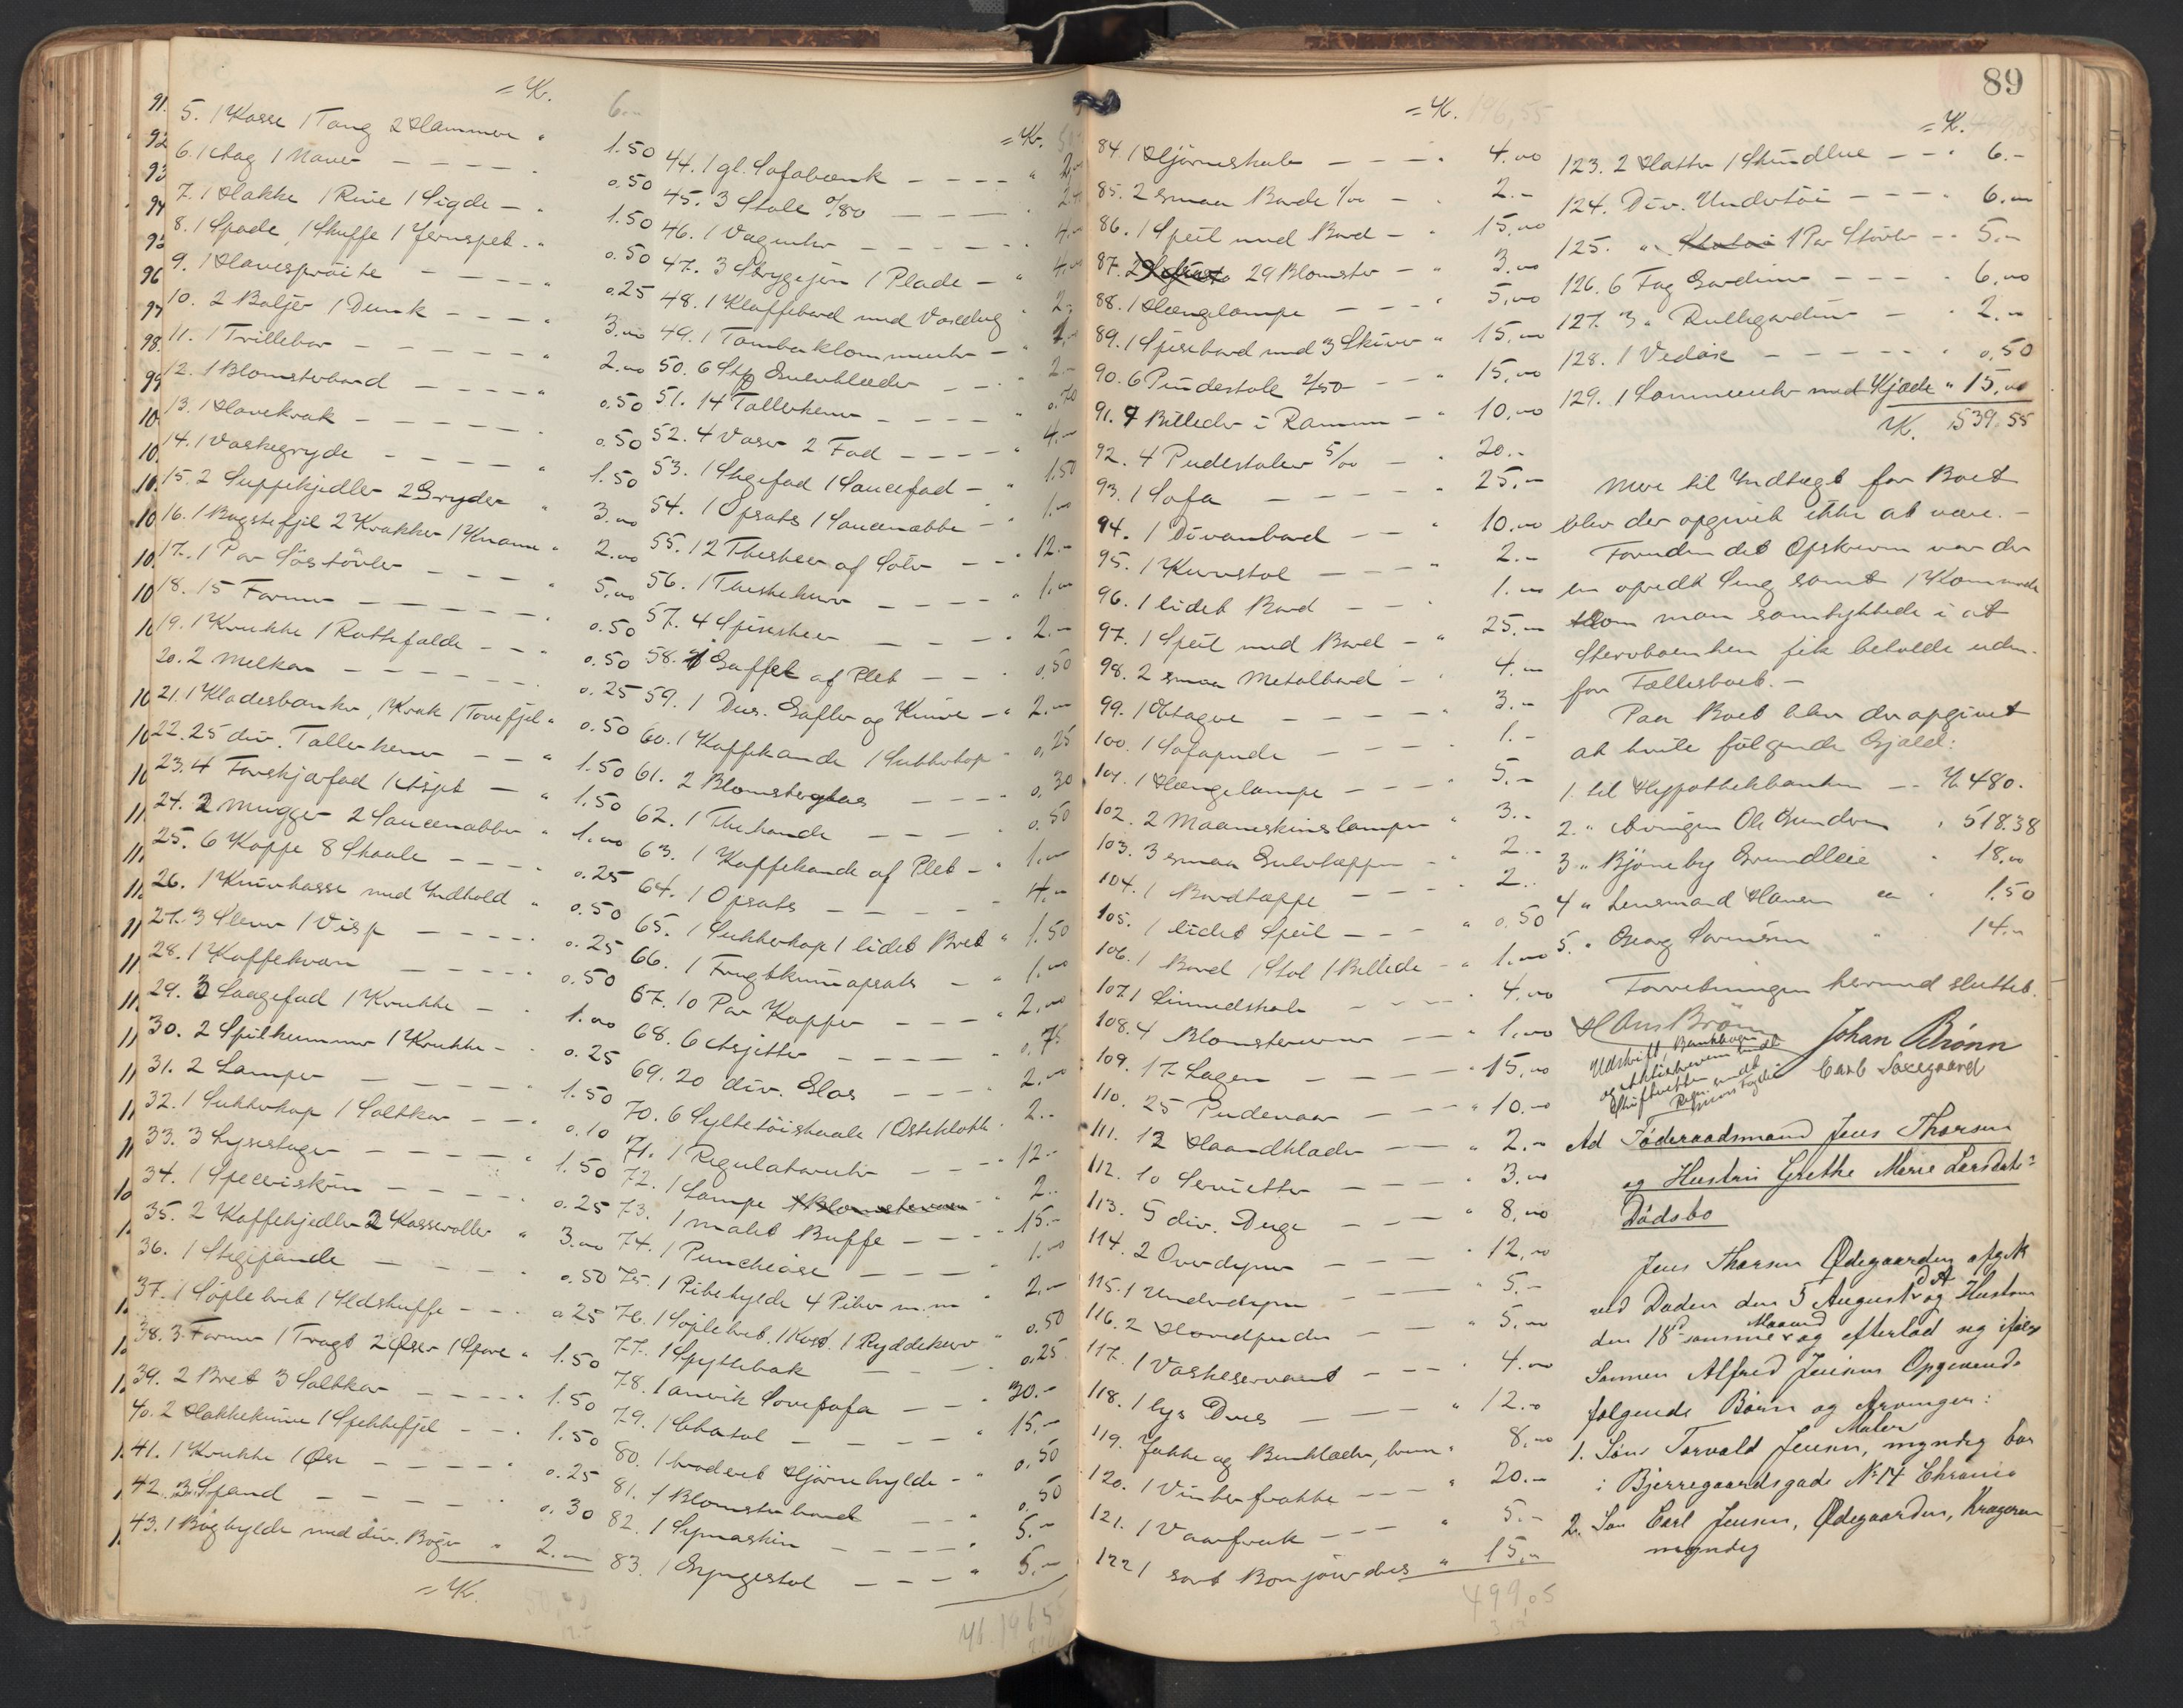 = K. 6.-
5. 1 Kasse 1 Tang 2 Hammere " 1.50
6. 1 Sag 1 Naver - - - - 0.50
7. 1 Hakke 1 Rive 1 Sigde - " 1.50
8. 1 Spade, 1 Skuffe 1 Jernspet - " 0.50
9. 1 Havesprøite - - - - " 0.25
10. 2 Baljer 1 Dunk - - - " 3.00
11. 1 Trillebør - - - - - " 2.00
12. 1 Blomsterbord - - - - " 0.50
13. 1 Havekrak - - - - - 0.50
14. 1 Vaskegryde - - - - " 1.50
15. 2 Suppekjedler 2 Gryder " 3.00
16. 1 Bagstefjel 2 Krakker 1 " 2.00
17. 1 Par Søstøvler - - - " 5.00
18. 15 Former - - - - - 0.50
19. 1 Krukke 1 Rottefælde - - " 0.50
20. 2 Melkar - - - - - 0.25
21. 1 Kladesbanker, 1 Krak 1 Tovefjel " 0.50
22. 25 div. Tallerkener - - " 1.50
23. 4 Forskjærfad 1 Asjet - " 1.50
24. 2 Mugger 2 Saucenabber " 1.00
25. 6 Kopper 8 Skaale - - - 0.25
26. 1 Knivkasse med Indhold " 0.50
27. 3 Sleiver 1 Visp - - - - 0.25
28. 1 Kaffekvarn - - - - 0.50
29. 3 Saagefad 1 Krukke - " 1.00
30. 2 Spilkummer 1 Krukke - " 0.25
31. 2 Lamper - - - - - 1.50
32. 1 Sukkerkop 1 Saltkar - - " 0.10
33. 3 Lysestager - - - - " 1.50
34. 1 Specerískrin - - - - 0.25
35. 2 Kaffekjedler 2 Kasseroller " 3.00
36. 1 Stegepande - - - - 0.50
37. 1 Søplebret 1 Ildskuffe - - 0.25
38. 3 Former 1 Tragt 2 Øser 1 " 1.50
39. 2 Bret 3 Saltkar - - - - 1.50
40. 2 Hakkekniver 1 Spekkefjel - - 1.50
41. 1 Krukke 1 Øse - - - - " 0.25
42. 3 Spand - - - - - 0.30
43. 1 Boghylde med div. Bøger " 2.-
= K.
= K.
44. 1 gl. Sofabænk - - - - " 2.-
45. 3 Stole 0/80 - - - - 2.40
46. 1 Vægurhr - - - - - 4.-
47. 3 Strygejern 1 Plade - " 4.00
48. 1 Klaffebord med Voxdug " 2.-
49. 1 Tombaklommeuhr - " 1.-
50. 6 Stk Gulvklæder - - " 2.-
51. 14 Tallerkener - - - - " 0.70
52. 4 Vaser 2 Fad - - - - " 4.-
53. 1 Stegefad 1 Saucefad - " 1.50
54. 1 Opsats 1 Saucenabbe - " 1.00
55. 12 Theskeer af Sølv - - " 12.-
56. 1 Theskekurv - - - - " 1.00
57. 4 Spiseskeer - - - " 2.-
58. 1 Gaffel af Plet - - " 0.50
59. 1 Dus. Gafler og Knive - " 2.-
60. 1 Kaffekande 1 Sukkerkop " 0.25
61. 2 Blomsterglas - - - - 0.30
62. 1 Thekande - - - - 0.50
63. 1 Kaffekande af Plet - " 1.00
64. 1 Opsats - - - - - 4.-
65. 1 Sukkerkop 1 lidet Bret " 1.50
66. 1 Frugtknivopsats - " 1.00
67. 10 Par Kopper - - - " 2.00
68. 6 Asjetter - - - - " 0.75
69. 20 div. Glas - - - 2.00
70. 6 Syltetøiskaale 1 Osteklokke " 2.-
71. 1 Regulatoruhr - - - 12.-
72. 1 Lampe 2.-
73. 1 malet Buffe - - - 15.-
74. 1 - - - - 1.00
75. 1 Pibehylde 4 Piber m.m " 2.-
76. 1 Søplebret, 1 Kost. 1 Ryddekurv " 0.50
77. 1 Spyttebak - - " 0.25
78. 1 anvik Sovesofa - - " 30.-
79. 1 Chatol - - - - " 15.-
80. 1 broderet Hjørnehylde - " 0.50
81. 1 Blomsterbord - - " 0.50
82. 1 Symaskin - - - - " 5.-
83. 1 Gyngestol - - - " 5.-
K. 196.55
89
= K. 196,55
84. 1 Hjørneskab - - - " 4.00
85. 2 smaa Borde 1/00 - " 2.-
86. 1 Speil med Bord - " 15.00
87. 29 Blomster - " 3.00
88. 1 Hængelampe - - " 5.00
89. 1 Spisebord med 3 Skiver " 15.00
90. 6 Pindestole 2/50 - - " 15.00
91. 9 Billeder i Ramme - " 10.00
92. 4 Pidestaler 5/00 - " 20.-
93. 1 Sofa - - - - " 25.-
94. 1 Divanbord - - " 10.00
95. 1 Kurvstol - - - - " 2.-
96. 1 lidet Bord - - " 1.00
97. 1 Speil med Bord - " 25.-
98. 2 smaa Metalbord - " 4.00
99. 1 Etagere - - - - " 3.-
100. 1 Sofapude - - - " 1.-
101. 1 Hængelampe - - - " 5.-
102. 2 Maaneskinslamper " 3.-
103. 3 smaa Gulvtæpper - " 2.-
104. 1 Bordtæppe - - - " 2.-
105. 1 lidet Speil - - - " 0.50
106. 1 Bord 1 Stol 1 Billede - " 1.00
107. 1 Linnedskab - - - " 4.00
108. 4 Blomsterurner - - " 1.00
109. 17 Lagen - - - - 15.00
110. 25 Pudevaar - - - " 10.-
111. 12 Haandklæder - - " 2.-
112. 10 Servietter - - - " 3.00
113. 5 div. Duge - - - " 8.00
114. 2 Overdyner - - - " 12.00
115. 1 Underdyne - - - " 5.-
116. 2 Hovedpuder - - " 5.-
117. 1 Vaskeservant - - " 4.00
118. 1 lys Dres - - - - " 12.00
119. Jakke og Benklæder, brun " 8.00
120. 1 Vinterfrakke - - - " 20.-
121. 1 Vaarfrak - - - " 5.-
122 1 sort Bonjourdres " 15.-
499,05
= K. 499,05
123. 2 Hatter 1 Skindlue - - " 6.-
124. Div. Undertøi - - - - 6.00
125. " 1 Par Støvler - " 5.-
126. 6 Fag Gardiner - - - - 6.00
127. 3 " Rullegardiner - - " 2.-
128. 1 Vedøxe - - - - - " 0.50
129. 1 Lommeuhr med Kjæde " 15.00
K. 539,55
Mere til Indtægt for Boet
blev der opgivet ikke at være. -
Foruden det Opskrevne var der
en opredt Seng samt 1 Kommode
som man samtykkede i at
Stervboenken fik beholde uden-
for Fællesboet. -
Paa Boet blev der opgivet
at hvile følgende Gjæld:
1. til Hypothekbanken - - K 480.
2. " Ole Gundersen " 518.38
3 " Bjørneby Grundleie " 18.00
4 " Lensmand Hansen " 1.50
5. " Georg Sørensen " 14.-
Forretningen hermed sluttet.
H Ans Brönn
Johan Brönn
Carl Saxegaard
Udskrift, Bankbogen
Ad Føderaadsmand Jens Thorsen
og Hustru Grethe Marie Larsdatr
Dødsbo
Jens Thorsen Ødegaarden afgik
ved Døden den 5 August d A og Hustru
den 18d samme Maaned og efterlod sig ifølge
Sønnen Alfred Jensens Opgivende
følgende Børn og Arvinger:
1. Søn Torvald Jensen, Maler, myndig bor
i Bjerregaardsgade No 14 Chrania
2. Søn Carl Jensen, Ødegaarden, Kragerøen
myndig